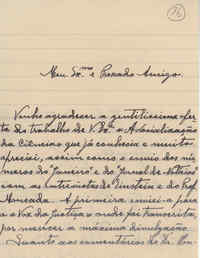 Meu Ex.mo e Prezado Amigo.
Venho agradecer a gentilissima ofer-
ta do trabalho de V. Ex.a a Actualização
da Ciencia que já conhecia e muito
apreciei, assim como o envio dos nu-
meros do "Janeiro" e do "Jornal de Noticias"
com as entrevistas de Einstein e do Prof.
A primeira enviei-a para
a Voz da Justiça onde foi transcrita,
por merecer a máxima divulgação.
Quanto aos comentarios do Sr.